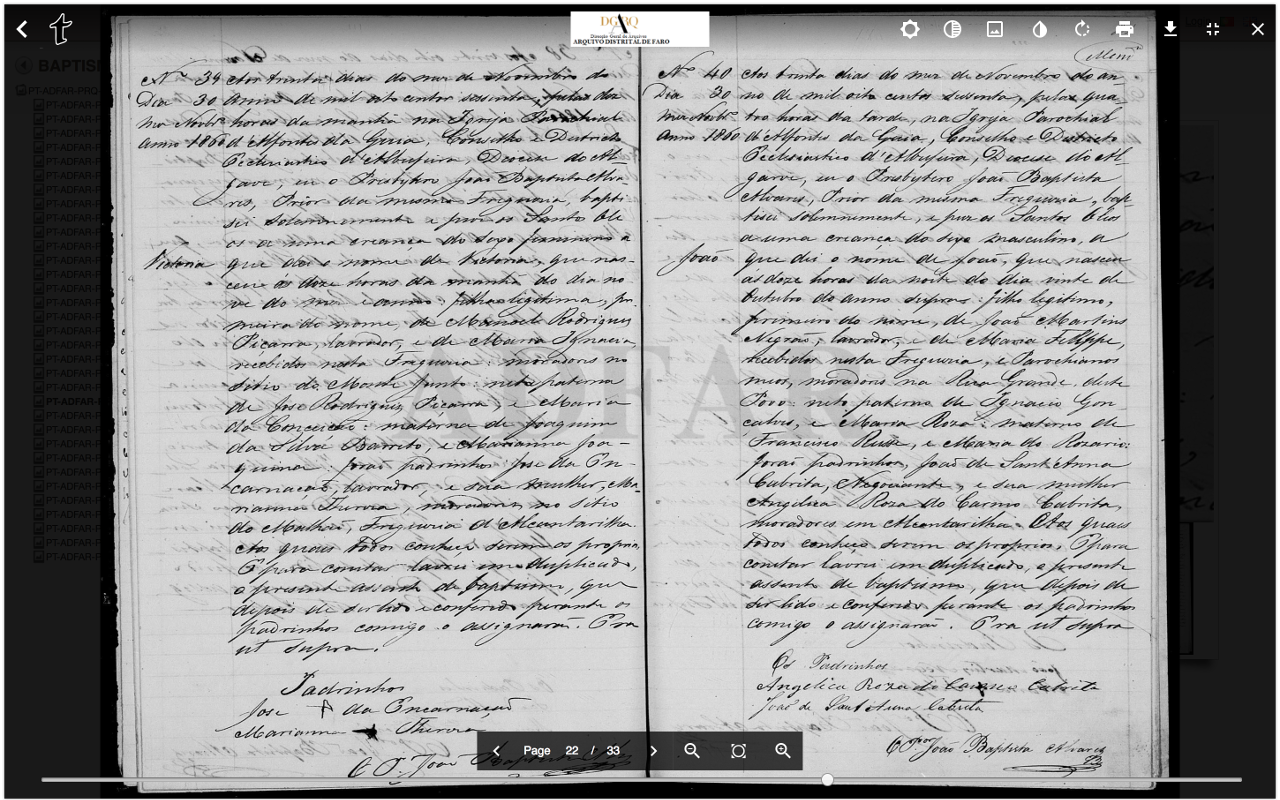 DGARQ
Direcção Geral de Arquivos
ARQUIVO DISTRITAL DE FARO
BAPTIS
PT-ADFAR-PRQ
Nº 39 Aos trinta dias do mez de Novembro do
Dia 30 anno de mil oito centos sessenta, pelas dez
horas da manhã na Igreja Parochial
Anno 1860 d'Alfontes da Guia, Conselho e Districto
Ecclesiastico d'Albufeira, Diocese do Al-
garve, eu o Presbytero João Baptista Alva-
res, Prior da mesma Freguezia, bapti-
sei solemnemente e puz os Santos Ole
os a uma creança do sexo feminino a
Victoria que dei o nome de Victoria, que nas-
ceu ás doze horas da manhã do dia no
ve do mez e anno: filha legitima, pri
meira do nome, de Manoel Rodrigues
Piçarra, lavrador, e de Maria Ignacia,
recebidos nesta Freguezia: moradores no
sitio de Monte junto: neta paterna
de José Rodrigues Piçarra, e Maria
da Conceição: materna de Joaquim
da Silva Barreto, e Marianna Joa-
quina: forão padrinhos: José da En-
carnação, lavrador, e sua mulher, Ma-
rianna Thereza, moradores no sitio
do Malhão, Freguezia d'Alcantarilha.
Aos quaes todos conheço serem os proprios,
E para constar lavrei em duplicado,
o presente assento de baptismo, que
depois de ser lido e conferido perante os
padrinhos comigo o assignarão. Era
ut supra.
Padrinhos
José + da Encarnação
Marianna + Thereza
O P. João Baptista
Nº 40 Aos trinta dias do mez de Novembro do an
Dia 30 no de mil oito centos sessenta, pelas qua
Mez Novbro tro horas da tarde, na Igreja Parochial
Anno 1860 d'Alfontes da Guia, Conselho e Districto
Ecclesiastico d'Albufeira, Diocese do Al-
garve, eu o Presbytero João Baptista
Alvares, Prior da mesma Freguezia, bap-
tisei solemnemente, e puz os Santos Oleos
a uma creança do sexo masculino, a
João que dei o nome de João, que nasceu
ás doze horas da noite do dia vinte de
Outubro do anno supra: filho legitimo,
primeiro do nome, de João Martins
Negrão, lavrador, e de Maria Felippe,
recebidos nesta Freguezia, e Parochianos
meus, moradores na Rua Grande, deste
Povo: neto paterno de Ignacio Gon-
calves, e Maria Roza: materno de
Francisco e Maria do Rozario:
forão padrinhos, João de Sant'Anna
Cabrita, Negociante, e sua mulher
Angelica Roza do Carmo Cabrita,
moradores em Alcantarilha. Aos quaes
todos conheço serem os proprios, E para
constar lavrei em duplicado, o presente
assento de baptismo, que depois de
ser lido e conferido perante os padrinhos
comigo o assignarão. Era ut supra
Os Padrinhos
Angelica Roza do Cabrita
João de Sant Anna Cabrita
João Baptista Alvares
ADFAR
Page 22 / 33